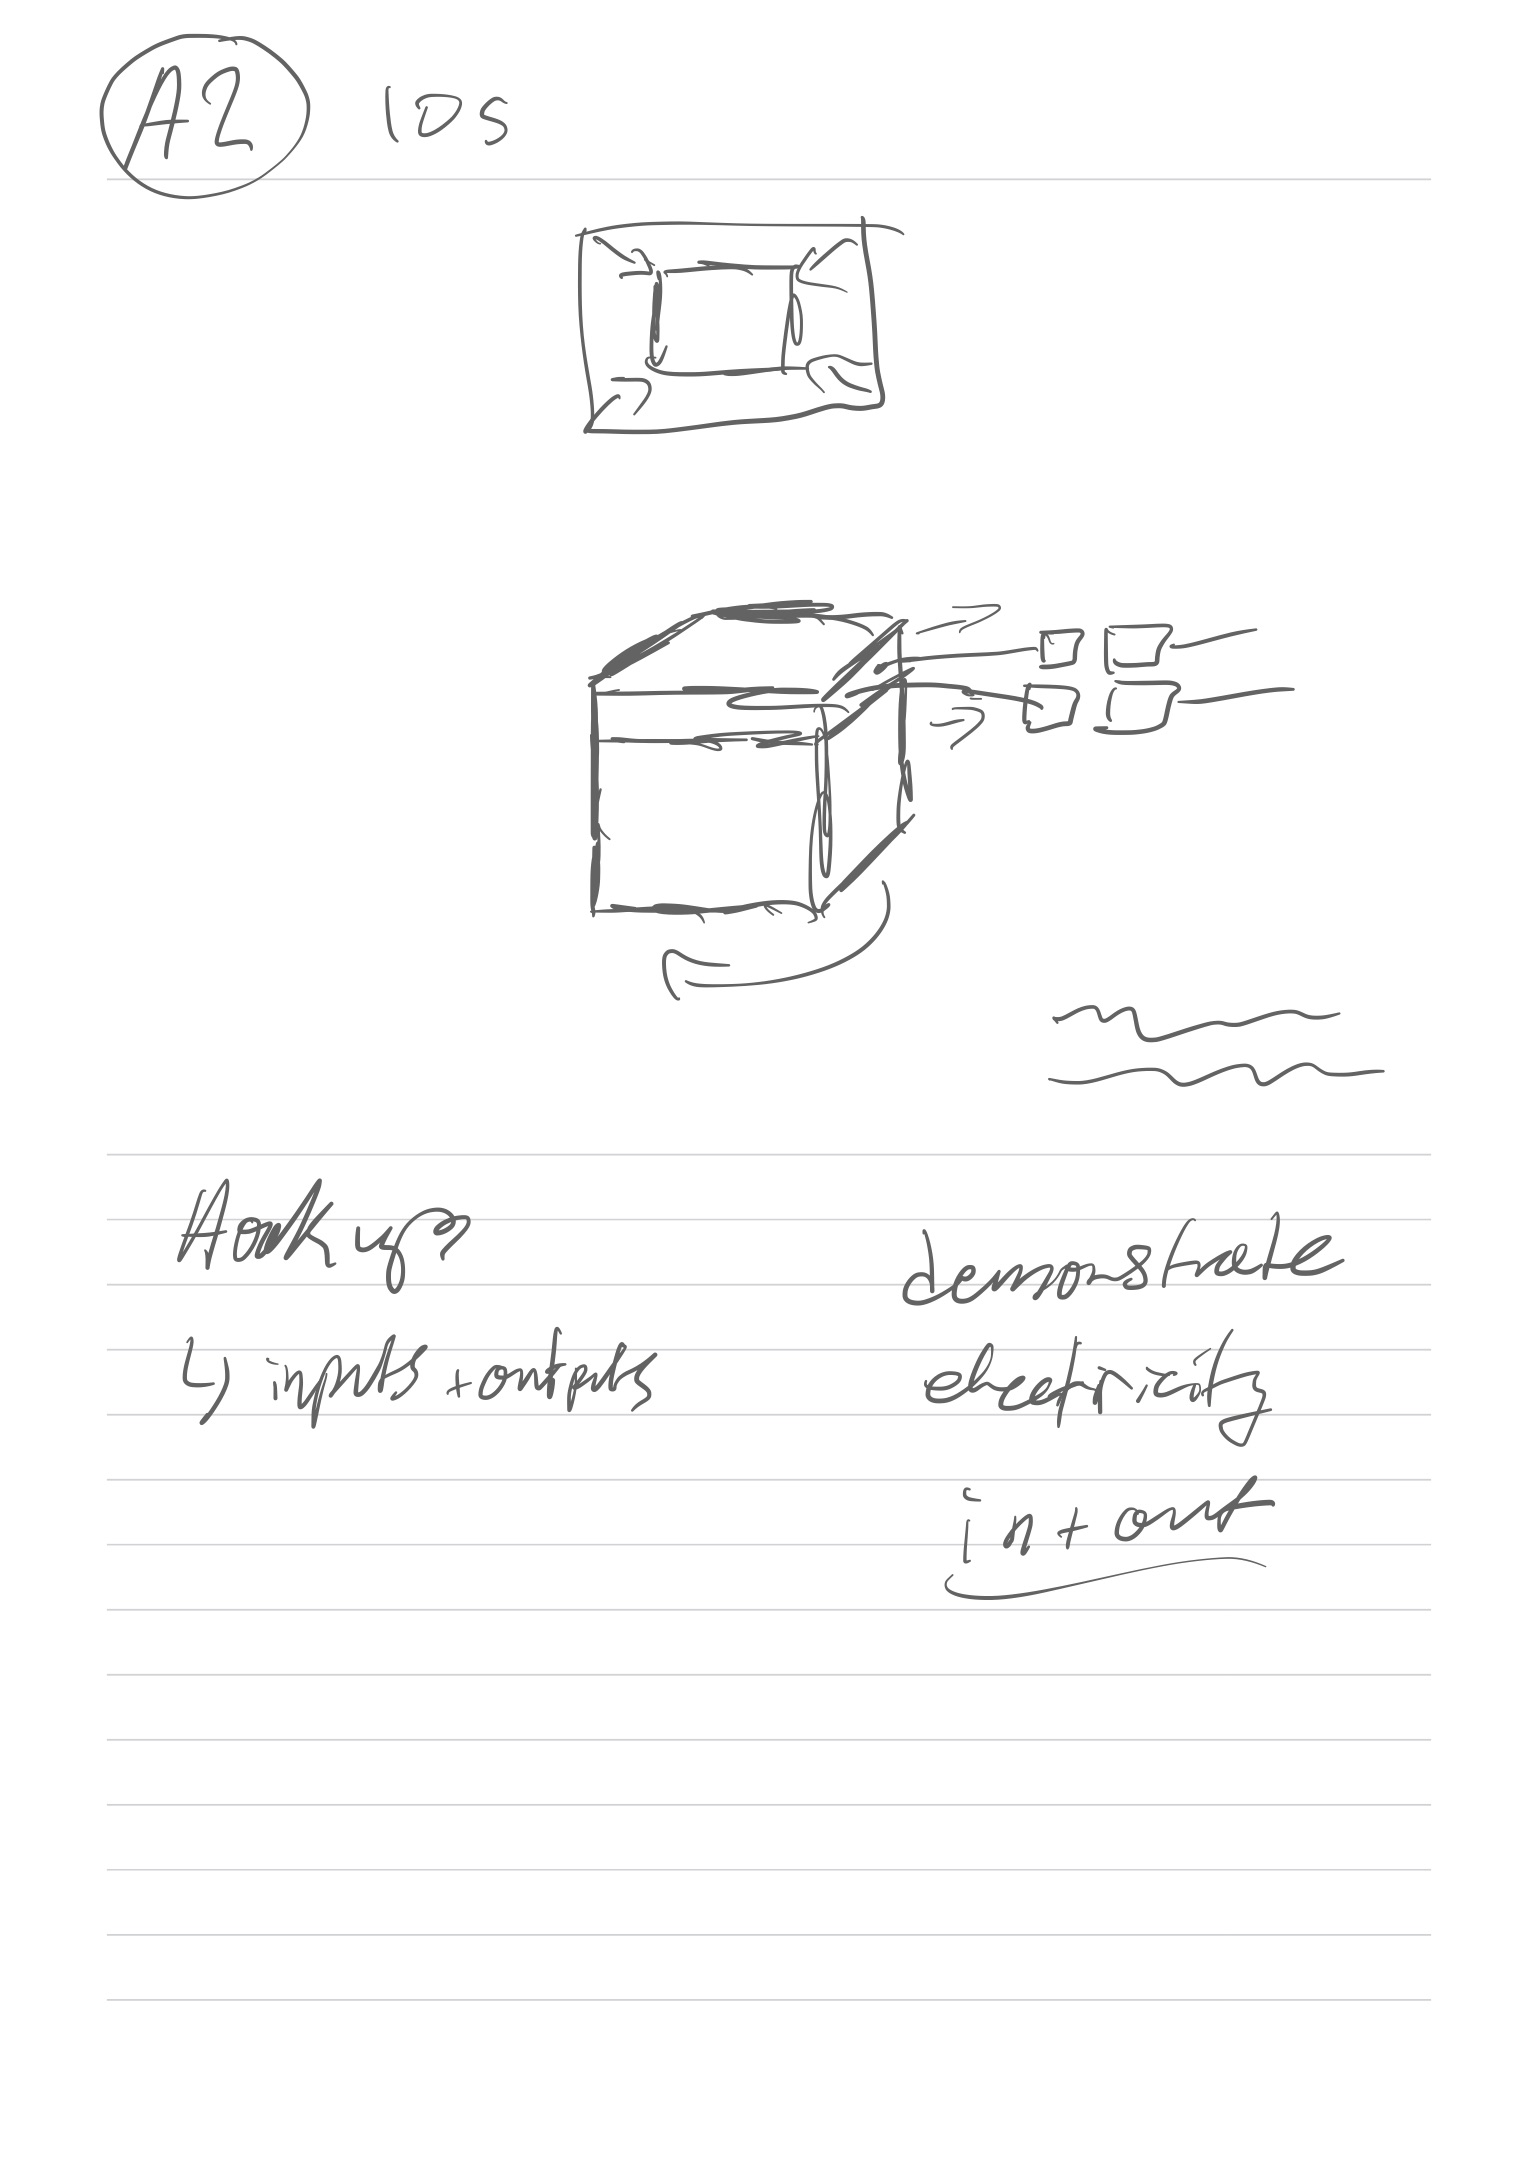 A2 10s
Hook ups
↳ inputs + outputs
demonstrate
electricity
in + out